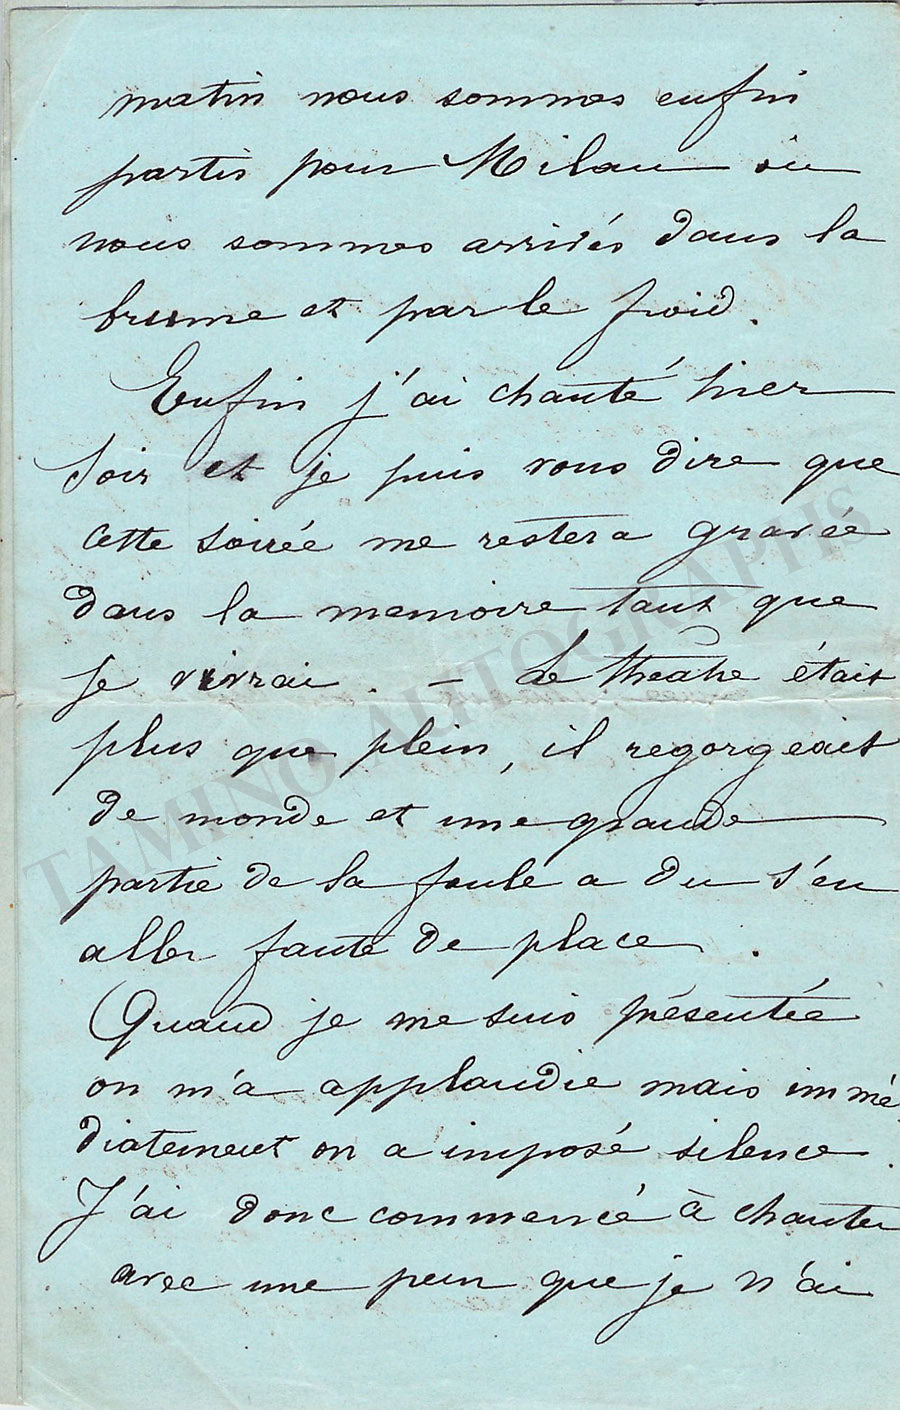 matin nous sommes enfin
partis pour Milan où
nous sommes arrivés dans la
brume et par le froid.
Enfin j'ai chanté hier
Soir et je puis vous dire que
cette soirée me restera gravée
dans la memoire tant que
je vivrai. — Le théatre était
plus que plein, il regorgeait
de monde et une grande
partie de la foule a du s'en
aller faute de place.
Quand je me suis présentée
on m'a applaudie mais immé
diatement on a imposé silence.
J'ai donc commencé à chanter
avec une peur que je n'ai
TAMINO AUTOGRAPHS